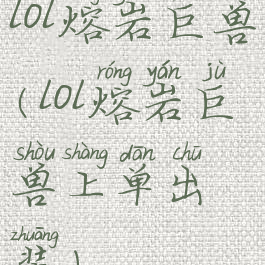 lol熔岩巨兽
róng yán jù
(lol熔岩巨
shòu shàng dān chū
兽上单出
zhuāng
装)